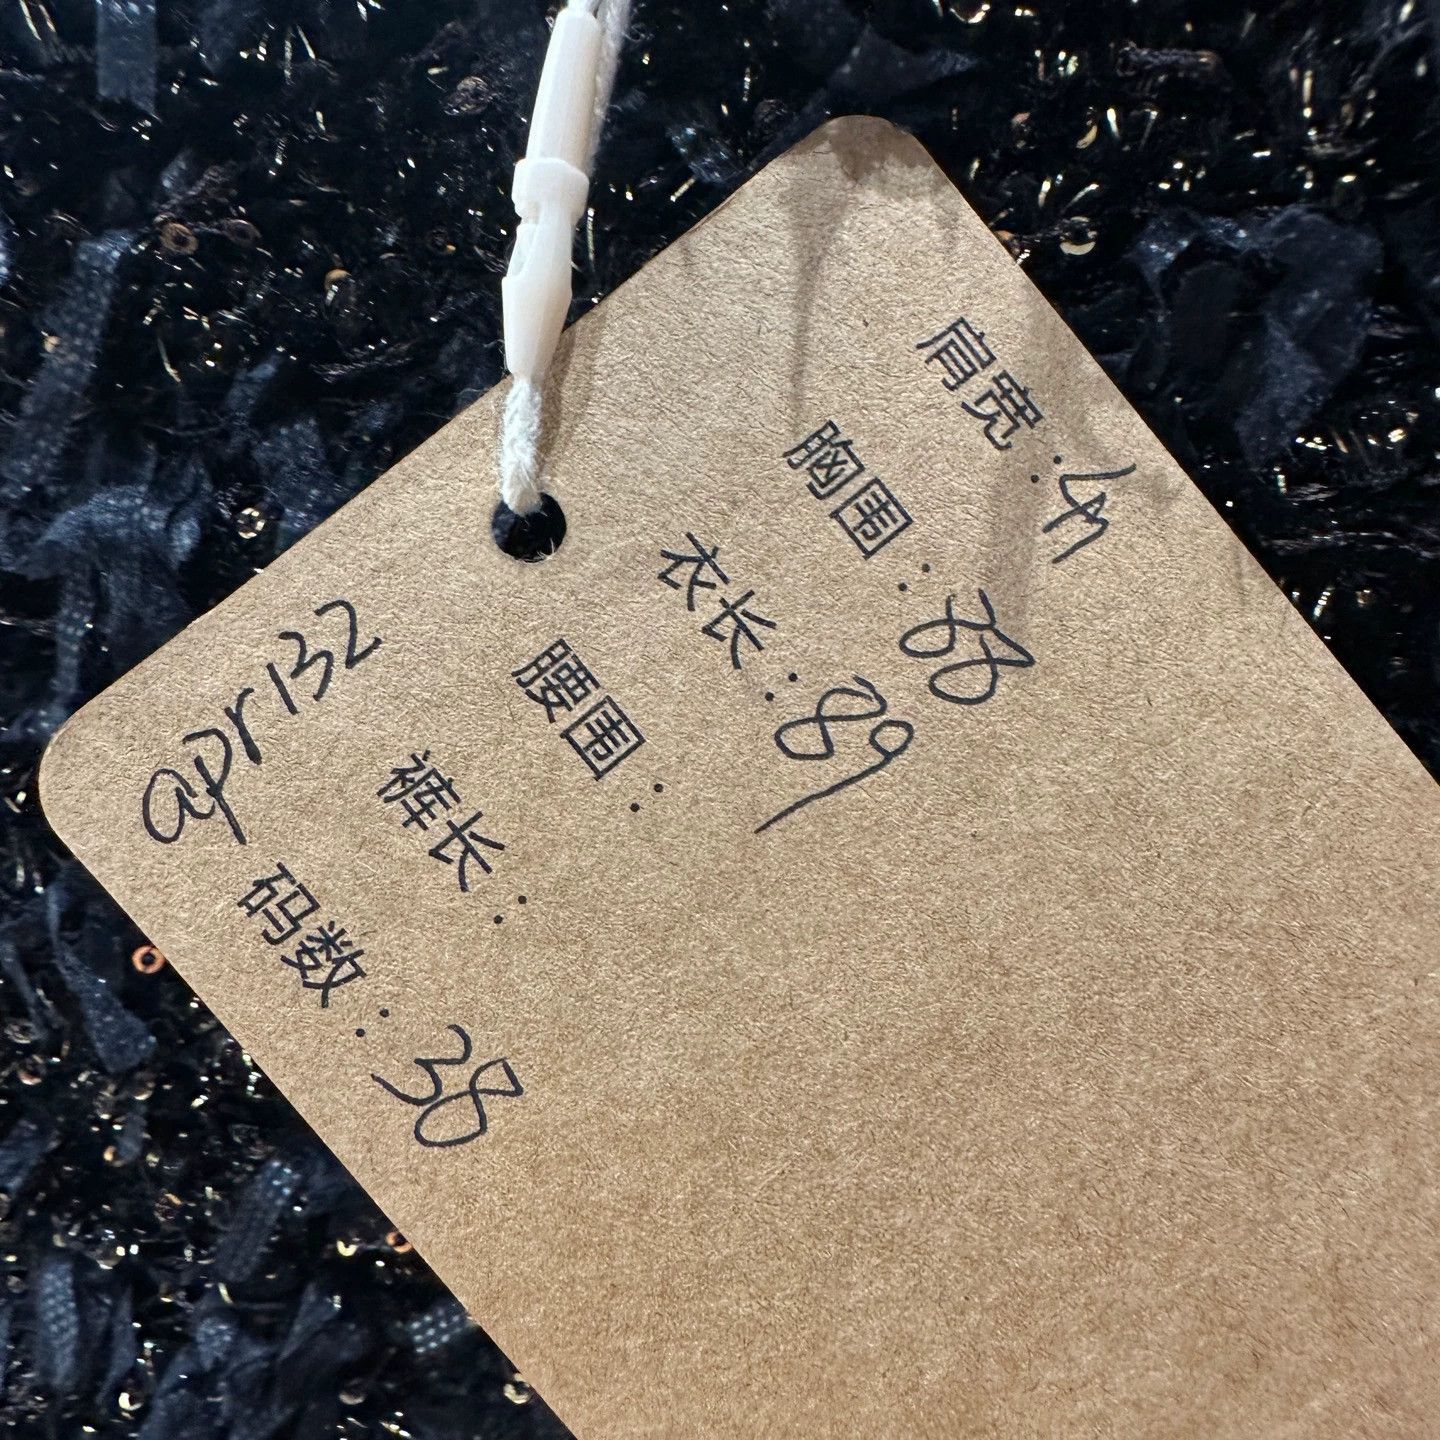 肩宽：
胸围：88
衣长：89
腰围：
裤长：
码数：38
apr132